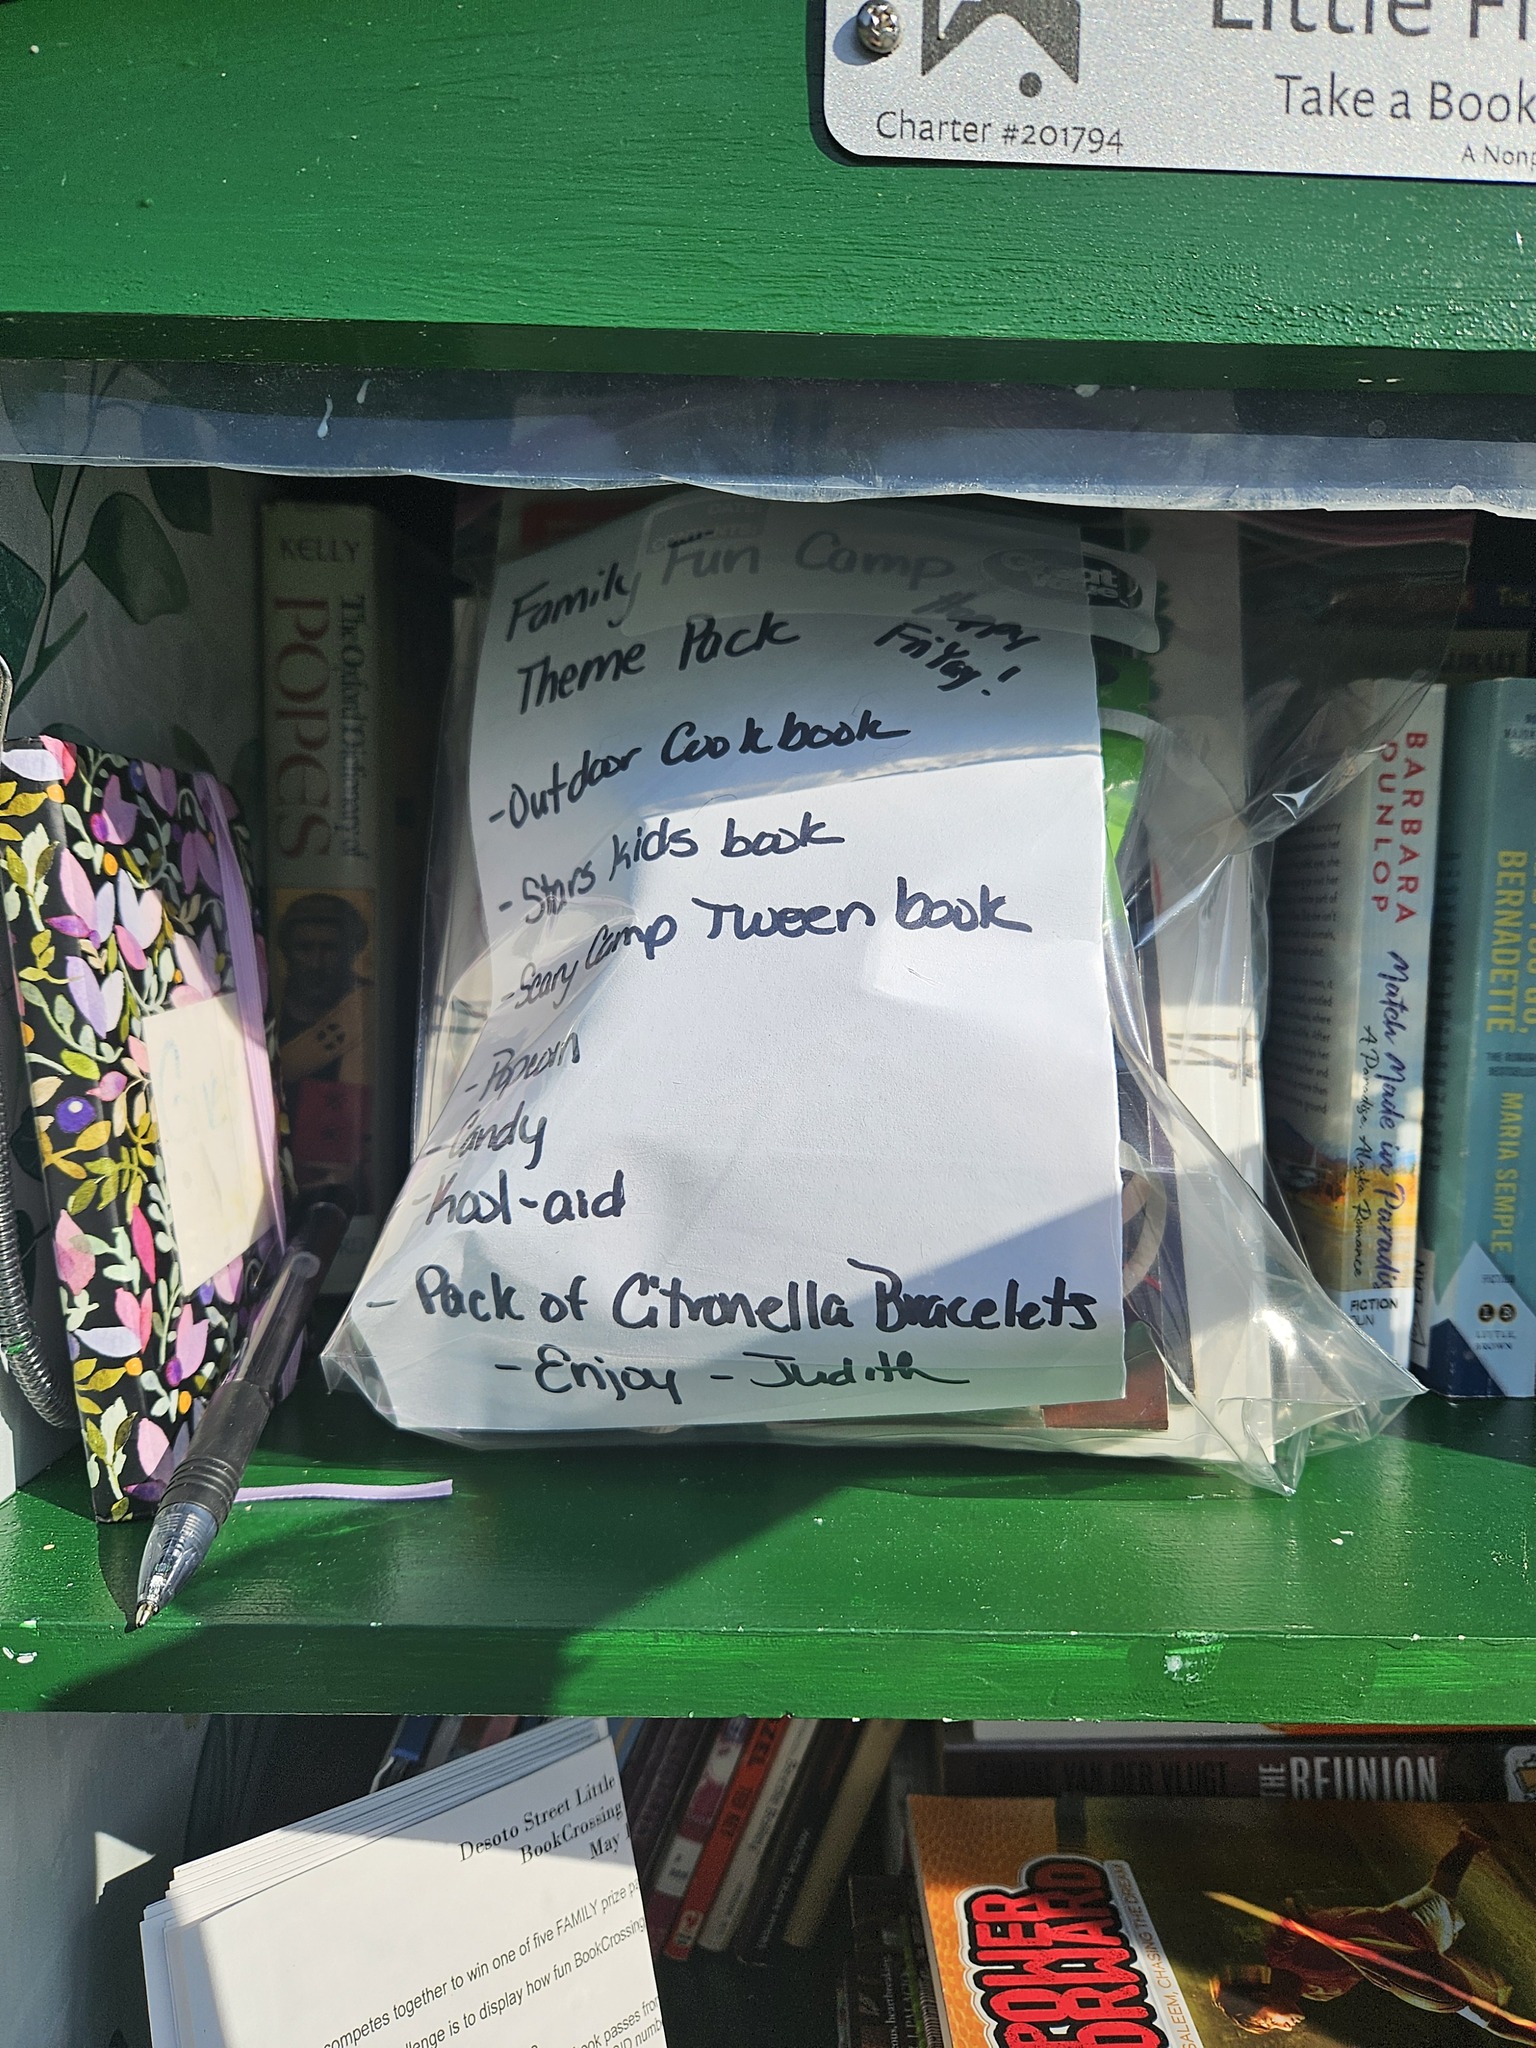 Little
Take a Book
A Nonp
Charter #201794
KELLY
The Oxford Dictionary of
POPES
Great Value
Family Fun Camp
Theme Pack
Happy
FriYay!
-Outdoor Cookbook
-Stars kids book
-Scary Camp Tween book
-Popcorn
-Candy
-Kool-aid
- Pack of Citronella Bracelets
-Enjoy - Judith
BARBARA DUNLOP
Match Made in Paradise
A Paradise, Alaska Romance
FICTION
BERNADETTE
MARIA SEMPLE
FICTION
LITTLE, BROWN
Desoto Street Little
BookCrossing
May
competes together to win one of five FAMILY prize pa
llenge is to display how fun BookCrossing
book passes from
VAN DER VLUGT
THE REUNION
POWER
FORWARD
SALEEM, CHASING THE DREAM